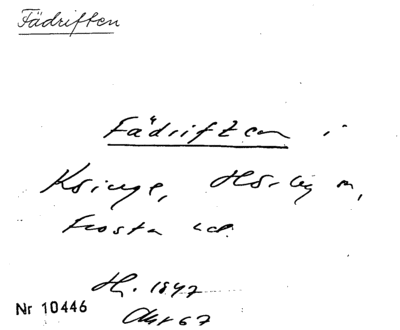 Fädriften
Fädriften i
Kringe, Hörby m,
Frosta
H. 1847
Nr 10446